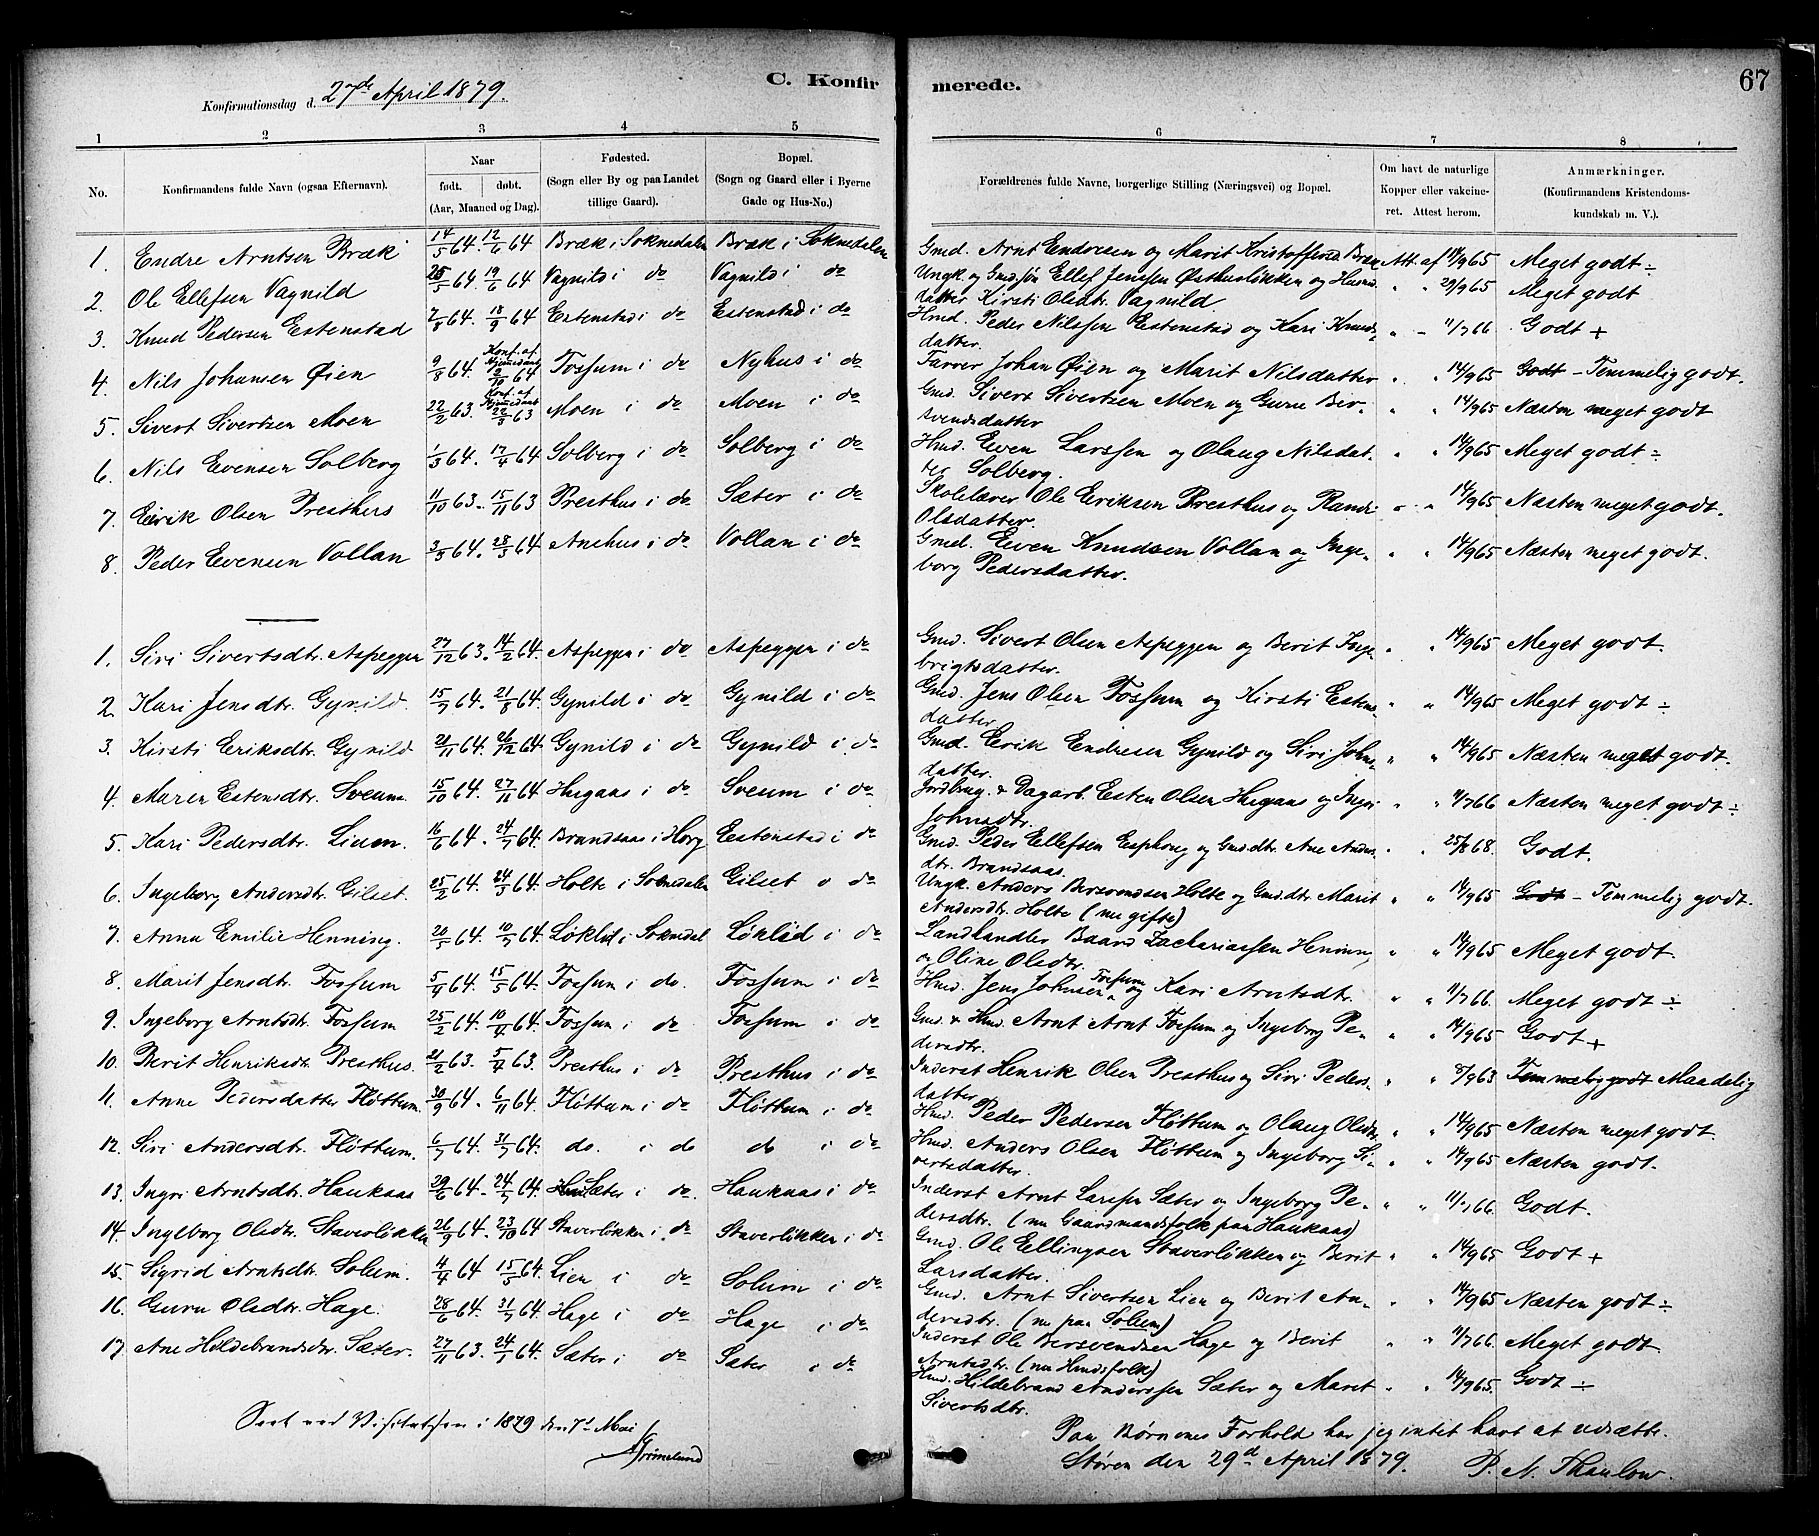 C. Konfir
merede.
67
Konfirmationsdag d. 27de April 1879.
1 2 3 4 5 6 7 8
No.
Konfirmandens fulde Navn (ogsaa Efternavn).
Naar
født. døbt.
(Aar, Maaned og Dag).
Fødested.
(Sogn eller By og paa Landet
tillige Gaard).
Bopæl.
(Sogn og Gaard eller i Byerne
Gade og Hus-No.)
Forældrenes fulde Navne, borgerlige Stilling (Næringsvei) og Bopæl.
Om havt de naturlige
Kopper eller vakcine-
ret. Attest herom.
Anmærkninger.
(Konfirmandens Kristendoms-
kundskab m. V.).
1. Endre Arntsen Bræk 14/5 64. 12/6 64 Bræk i Soknedalen Bræk i Soknedalen Gmd. Arnt Endresen og Marit Kristoffersd. Bræk Att. af 14/9 65 Meget godt ÷
2. Ole Ellefsen Vagnild 25/5 64. 19/6 64 Vagnild i do Vagnild i do Ungk. og Gmd.søn Ellef Jenssen Østhusløkken og Husmd.
datter Kirsti Olsdtr. Vagnild " " 29/9 65 Meget godt
3. Knud Pedersen Estenstad 7/8 64. 18/9 64 Estenstad i do Estenstad i do Hmd. Peder Nilssen Estenstad og Kari Knuds-
datter. " " 11/7 66 Godt +
4. Nils Johansen Øien 9/8 64. Konf. af Hjemedaab 2/10 64 Fossum i do Nyhus i do Farver Johan Øien og Marit Nilsdatter " " 14/9 65 Godt - Temmelig godt.
5. Sivert Sivertsen Moen 22/2 63. Konf. af Hjemedaab 22/3 63 Moen i do Moen i do Gmd. Sivert Sivertsen Moen og Guru Ber-
svendsdatter " " 14/9 65 Næsten meget godt
6. Nils Evensen Solberg 1/3 64. 17/4 64 Solberg i do Solberg i do Hmd. Even Larssen og Olaug Nilsdat-
ter Solberg. " " 14/9 65 Meget godt ÷
7. Eirik Olsen Presthus 11/10 63. 15/11 63 Presthus i do Sæter i do Skolelærer Ole Eriksen Presthus og Randi
Olsdatter. " " 14/9 65 Næsten meget godt.
8. Peder Evensen Vollan 3/3 64. 28/3 64 Anehus i do Vollan i do Gmd. Even Knudsen Vollan og Inge-
borg Pedersdatter. " " 14/9 65 Næsten meget godt.
1. Siri Sivertsdtr. Aspeggen 27/12 63. 14/2 64. Aspeggen i do Aspeggen i do Gmd. Sivert Olsen Aspeggen og Berit Inge-
brigtsdatter. " " 14/9 65 Meget godt.
2 Kari Jensdtr. Gynild. 15/7 64. 21/8 64. Gynild i do Gynild i do Gmd. Jens Olsen Fossum og Kirsti Estens-
datter. " " 14/9 65 Meget godt ÷
3. Kirsti Eriksdtr. Gynild 21/11 64. 26/12 64 Gynild i do Gynild i do Gmd. Erik Endresen Gynild og Siri Johns-
datter. " " 14/9 65 Næsten meget godt.
4. Maren Estensdtr. Sveum 15/10 64. 27/11 64 Hugaas i do Sveum i do Jordbrug. & Dagarb. Esten Olsen Hugaas og Ingri
Johnsdtr. " " 11/7 66 Næsten meget godt ÷
5. Kari Pedersdtr. Lium. 16/6 64. 24/7 64. Brandsaas i Horg Estenstad i do Gmd. Peder Ellefsen Esphoug og Gmd.dtr. Ane Anders-
dtr. Brandsaas. " " 25/8 68. Godt.
6. Ingeborg Andersdtr. Gilset. 25/2 64. 24/3 64. Holte i Soknedalen Gilset i do Ungk. Anders Bersvendsen Holte og Gmd.dtr. Marit
Andersdtr. Holte (nu gifte) " " 14/9 65 Godt - Temmelig godt.
7. Anna Emilie Henning. 20/5 64. 10/7 64. Løklid i Soknedal Løklid i do Landhandler Baard Zachariassen Henning
og Oline Olsdtr. " " 14/9 65 Meget godt.
8. Marit Jensdtr. Fossum 5/4 64. 15/5 64. Fossum i do. Fossum i do Hmd. Jens Johnsen Fossum og Kari Arntsdtr. " " 11/7 66. Meget godt ÷
9. Ingeborg Arntsdtr. Fossum 25/2 64. 10/4 64. Fossum i do Fossum i do Gmd. & Hmd. Arnt Arnt Fossum og Ingeborg Pe-
dersdtr. " " 14/9 65 Godt +
10. Berit Henriksdtr Presthus. 21/2 63. 5/4 63. Presthus i do Presthus i do Inderst Henrik Olsen Presthus og Siri Peders-
datter " " 8/9 63 Temmelig godt Maadelig
11. Anne Pedersdatter Fløttum. 30/9 64. 6/11 64. Fløttum i do Fløttum i do Hmd. Peder Pedersen Fløttum og Olaug Olsdtr " " 14/9 65 Næsten meget godt.
12. Siri Andersdtr. Fløttum. 6/7 64. 31/7 64. do. i do do i do Hmd. Anders Olsen Fløttum og Ingeborg Si-
vertsdatter. " " 14/9 65 Næsten godt.
13. Ingri Arntsdtr. Haukaas 29/6 64. 24/7 64. Sæter i do. Haukaas i do Inderst Arnt Larssen Sæter og Ingeborg Pe-
dersdtr. (nu Gaardmandsfolk paa Haukaas) " " 11/7 66. Godt.
14. Ingeborg Olsdtr. Staverløkken 26/9 64. 23/10 64 Staverløkken i do Staverløkken i do Gmd. Ole Ellingsen Staverløkken og Berit
Larsdatter. " " 14/9 65 Godt +
15. Sigrid Arntsdtr. Solum. 4/4 64 15/5 64. Lien i do Solum i do Gmd. Arnt Sivertsen Lien og Berit An-
dersdtr. (nu paa Solum) " " 14/9 65 Næsten godt ÷
16. Guru Olsdtr. Hage. 28/6 64. 31/7 64. Hage i do Hage i do Inderst Ole Bersvendsen Hage og Berit
Arntsdtr. (nu Hmdsfolk) " " 11/7 66. Meget godt.
17. Ane Hildebrandsdtr. Sæter. 27/11 63. 24/1 64. Sæter i do Sæter i do Hmd. Hildebrand Anderssen Sæter og Maret
Sivertsdtr. " " 14/9 65. Godt ÷
Seet ved Visitatsen i 1879 den 7de Mai
Grimelund
Paa Børnenes Forhold har jeg intet havt at udsætte.
Støren den 29d April 1879. P. A. Thaulow.